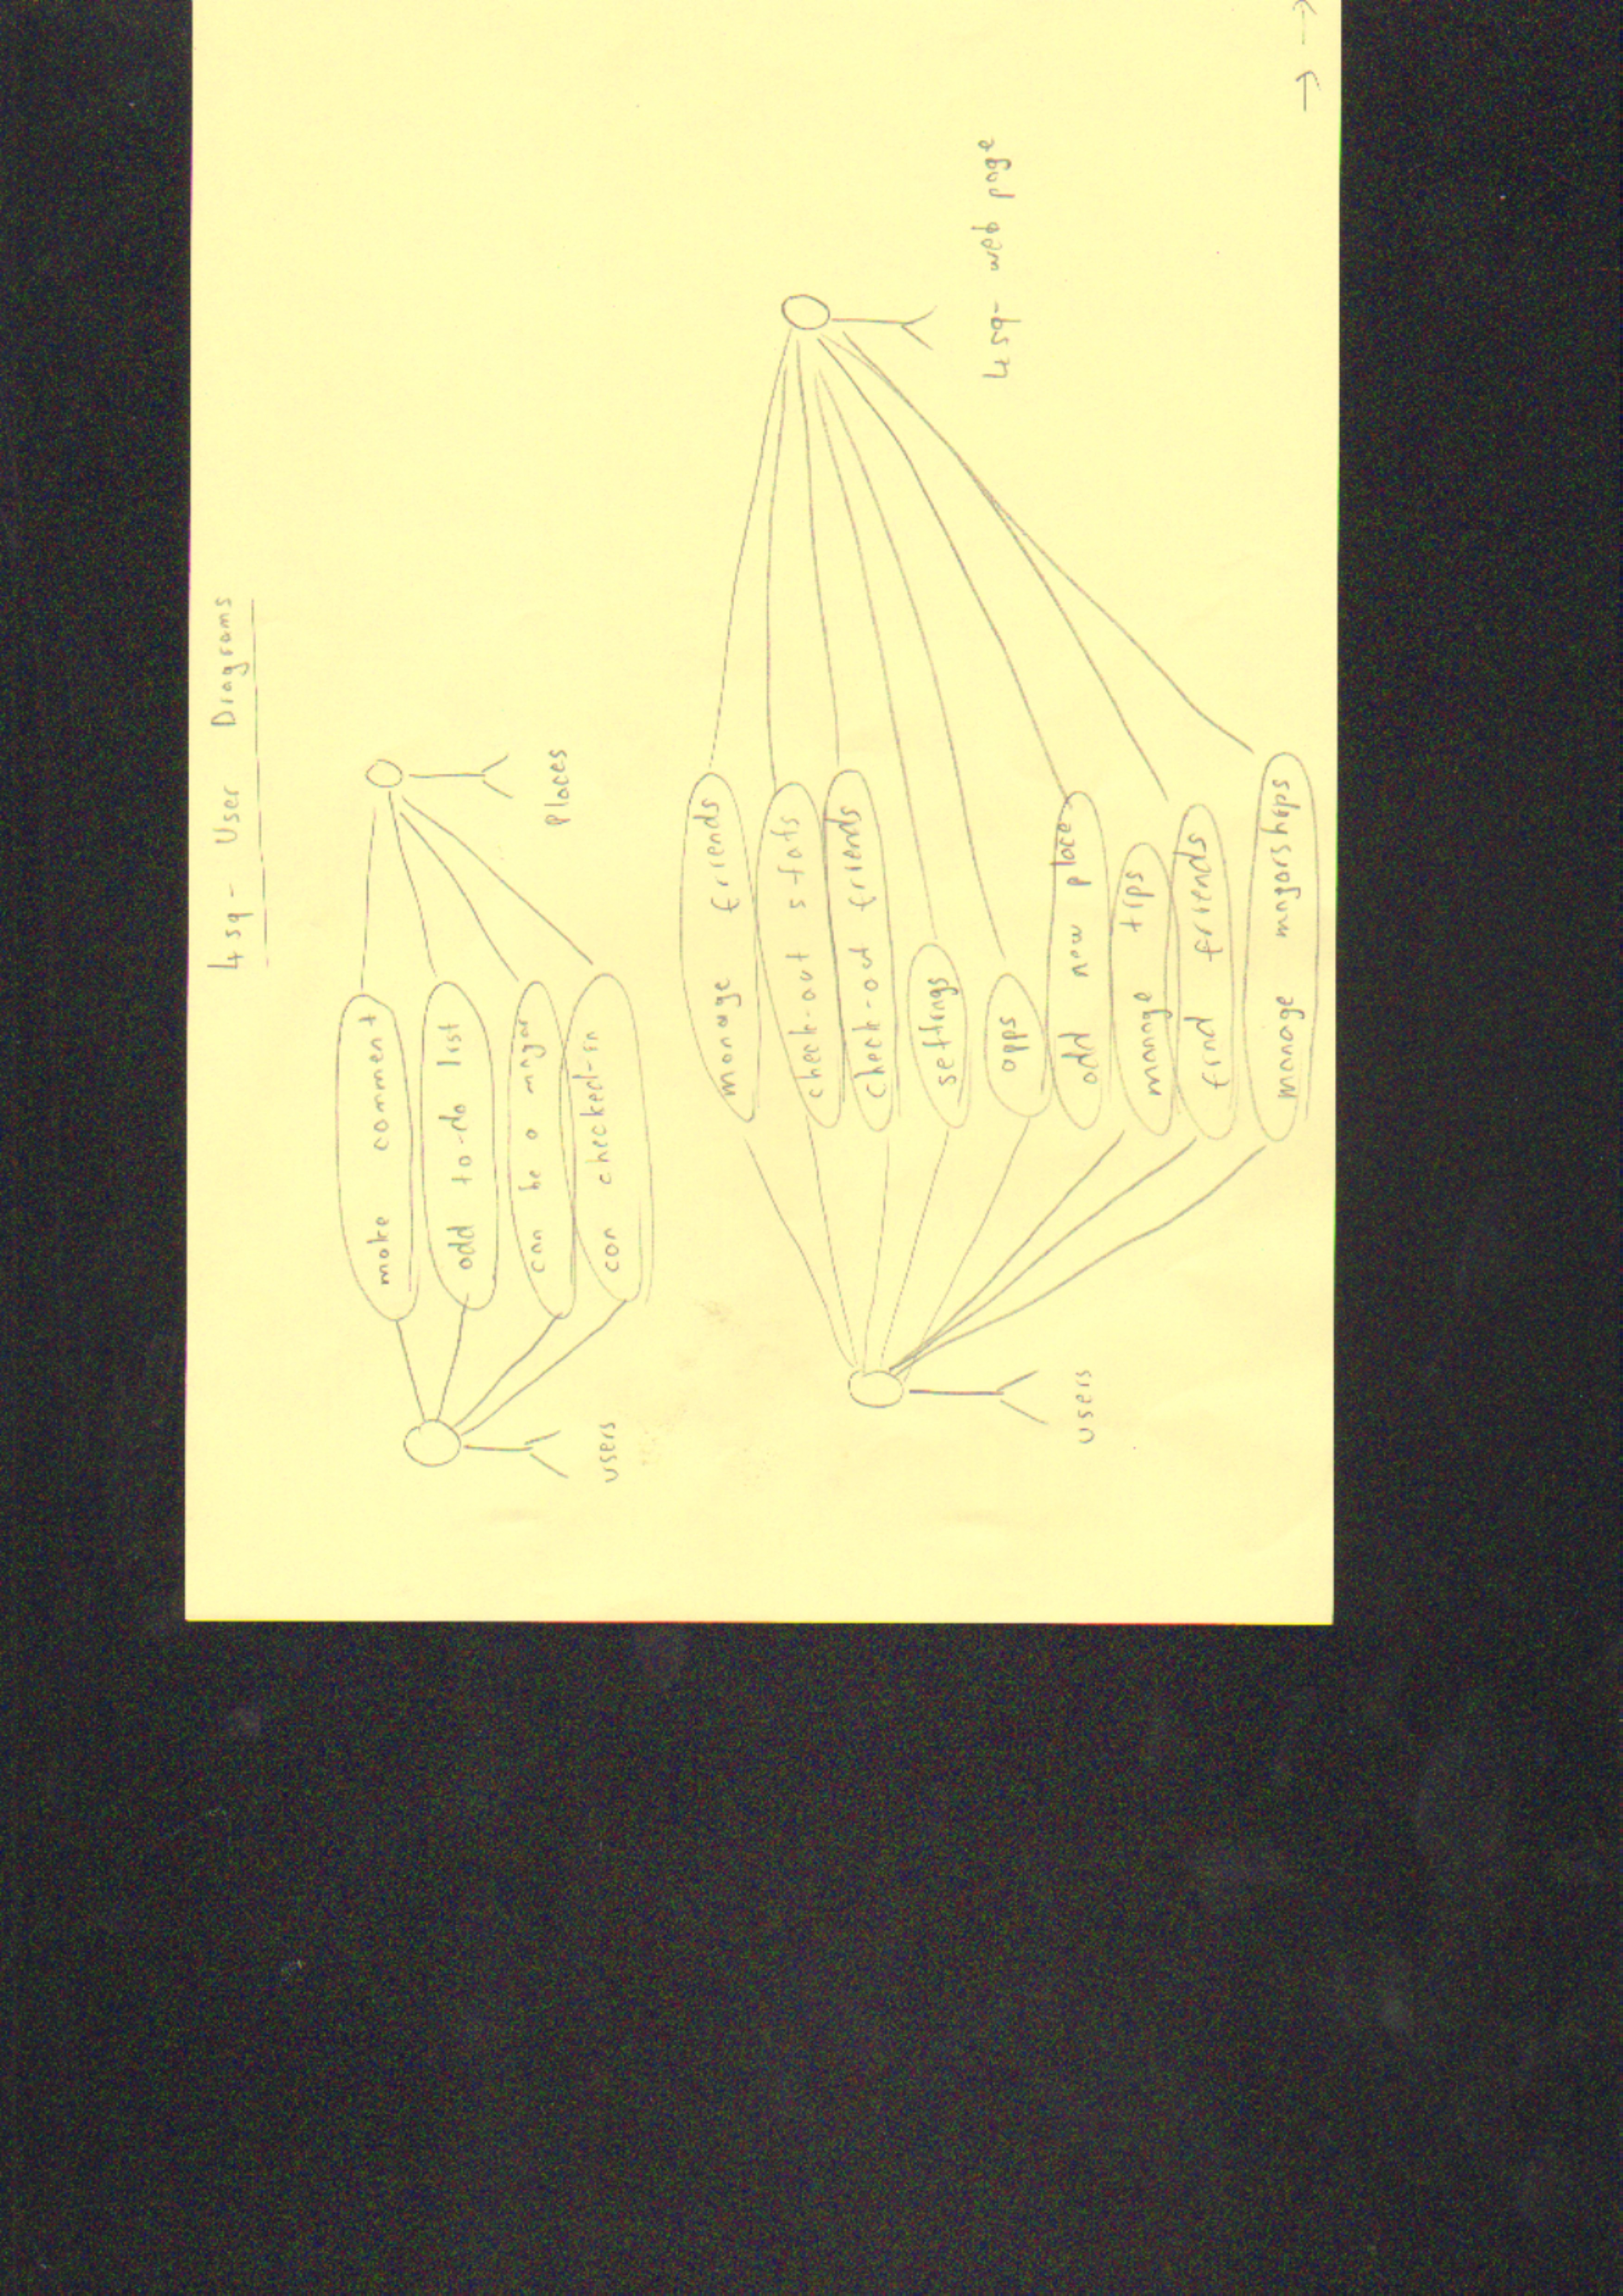 4sq - User Diagrams
make comment
add to-do list
can be a mayor
can checked-in
users
places
manage friends
check-out stats
check-out friends
settings
apps
add new place
manage tips
find friends
manage mayorships
users
4sq- web page